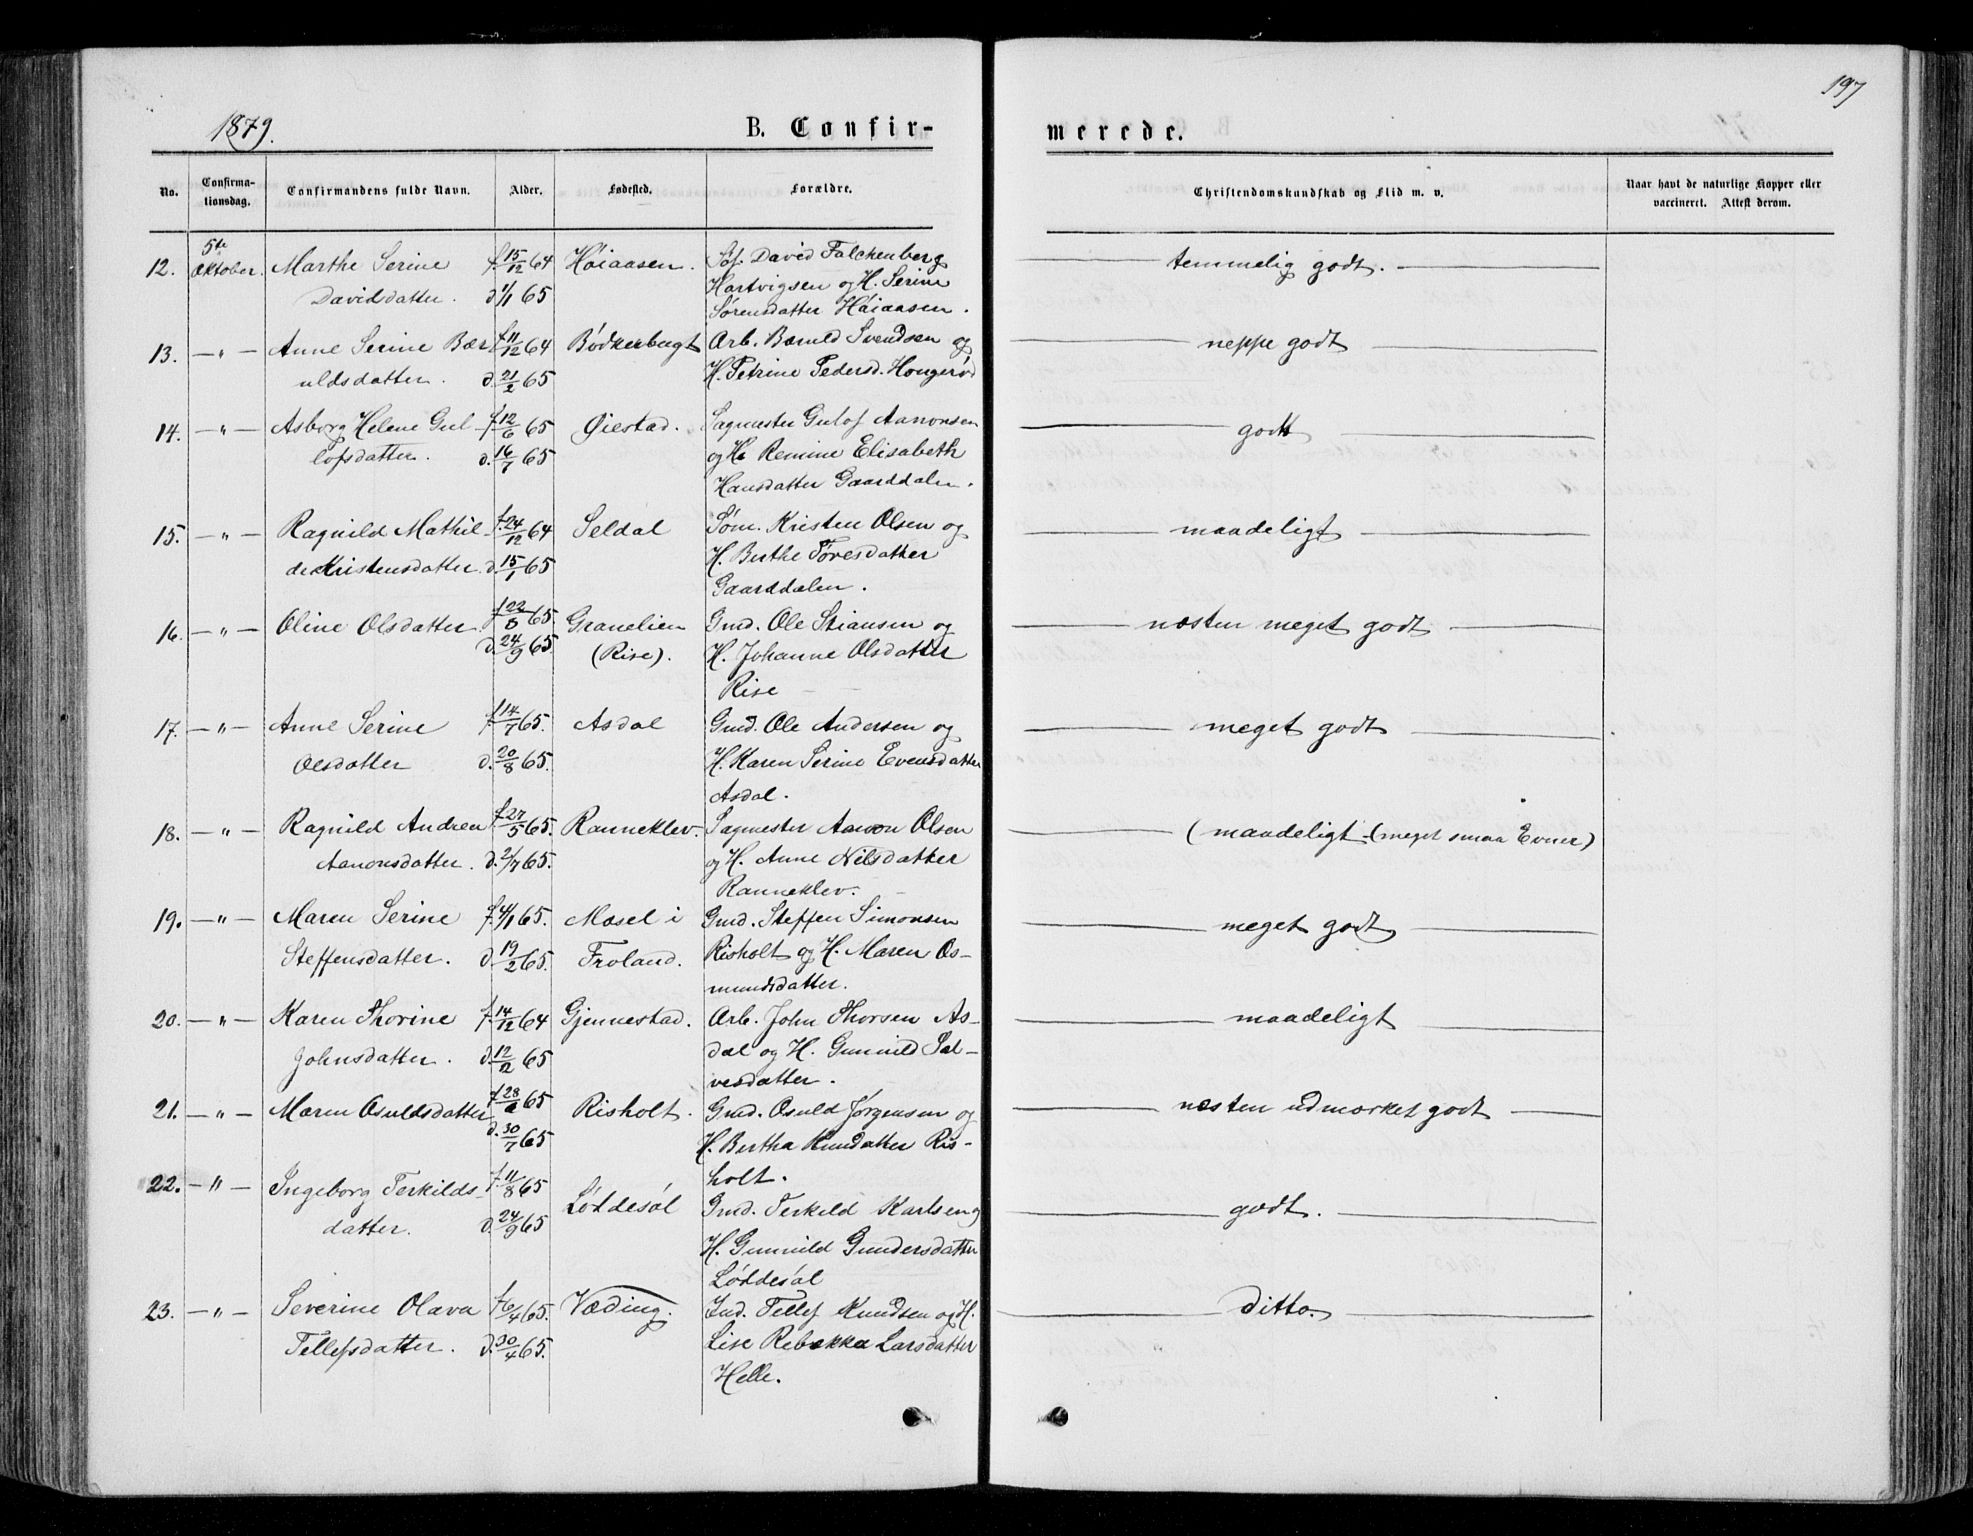 197
1879.
B. Confir-
merede.
No.
Confirma-
tionsdag.
Confirmandens fulde Navn.
Alder.
Fødested.
Forældre.
Christendomskundskab og Flid m. v.
Naar havt de naturlige Kopper eller
vaccineret. Attest derom.
12. 5te Oktober. Marthe Serine f. 15/12 64 Høiaasen. Søf. David Falckenberg temmelig godt.
Davidsdatter. d. 1/1 65 Hartvigsen og H. Serine
Sørensdatter Høiaasen.
13. — " — Anne Serine Bær- f. 11/12 64 Bødkerbugt Arb. Bæruld Svendsen og neppe godt
uldsdatter. d. 21/2 65 H. Petrine Pedersd. Hongerød
14. — " — Asborg Helene Gul- f. 12/6 65 Øiestad. Sagmester Gulof Aanonsen godt
lofsdatter. d. 16/7 65 og H. Remine Elisabeth
Hansdatter Gaarddalen.
15. — " — Ragnild Mathil- f. 24/12 64 Seldal Søm. Kristen Olsen og maadeligt
de Kristensdatter d. 15/1 65 H. Berthe Tøresdatter
Gaarddalen.
16. — " — Oline Olsdatter f. 22/8 65. Granelien Gmd. Ole Stiansen og næsten meget godt
d. 24/9 65. (Rise). H. Johanne Olsdatter
Rise
17. — " — Anne Serine f. 14/7 65. Asdal Gmd. Ole Andersen og meget godt
Olsdatter d. 20/8 65. H. Karen Serine Evensdatter
Asdal.
18. — " — Ragnild Andrea f. 27/5 65. Ranneklev. Sagmester Aanon Olsen (maadeligt (meget smaa Evner)
Aanonsdatter. d. 2/7 65. og H. Anne Nilsdatter
Ranneklev.
19. — " — Maren Serine f. 4/1 65. Mæsel i Gmd. Steffen Simonsen meget godt
Steffensdatter. d. 19/2 65. Froland. Risholt og H. Maren Os-
mundsdatter.
20. — " — Karen Thorine f. 14/12 64 Gjennestad. Arb. John Thorsen As- maadeligt
Johnsdatter. d. 12/2 65 dal og H. Gunnild Sal-
vesdatter.
21. — " — Maren Osuldsdatter f. 28/ 65 Risholt. Gmd. Osuld Jørgensen og næsten udmærket godt
d. 30/7 65 H. Bertha Knudatter Ris-
holt.
22. — " — Ingeborg Terkilds- f. 11/8 65 Løddesøl Gmd. Terkild Karlsen og godt.
datter. d. 24/9 65 H. Gunnild Gundersdatter
Løddesøl
23. — " — Severine Olava f. 6/4 65. Væding. Ind. Tellef Knudsen og H. ditto.
Tellefsdatter. d. 30/4 65. Lise Rebekka Larsdatter
Helle.